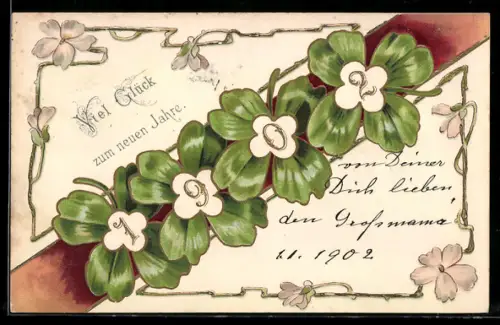 Viel Glück
zum neuen Jahre.
1902
von Deiner
Dich lieben
den Großmama
1.1. 1902